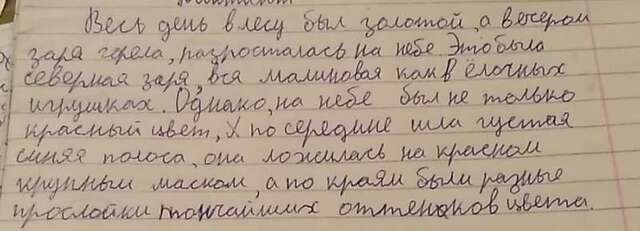 Весь день в лесу был золотой, а вечером
заря горела, разросталась на небе. Это была
северная заря, вся малиновая как в ёлочных
игрушках. Однако, на небе был не только
красный цвет, х по середине шла густая
синяя полоса, она ложилась на красном
крупным маском, а по краям были разные
прослойки тончайших оттенков цвета.